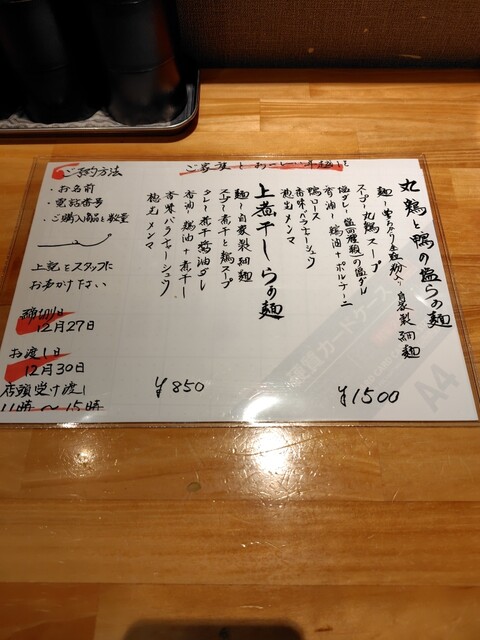 ご家族とおいしい年越しを
丸鶏と鴨の塩らぁ麺
麺ー全粒粉入り自家製細麺
スープ丸鶏スープ
塩ダレー塩の塩ダレ
香油ー鶏油+ポルチーニ
鴨ロース
香味バラチャーシュウ
穂先メンマ
¥1500
上煮干しらぁ麺
麺ー自家製細麺
スープー煮干と鶏スープ
タレー煮干醤油ダレ
香油ー鶏油+煮干し
香味バラチャーシュウ
穂先メンマ
¥850
ご予約方法
・お名前
・電話番号
・ご購入商品と数量
上記をスタッフに
お声がけ下さい
締切り日
12月27日
お渡し日
12月30日
店頭受け渡し
11時〜15時
硬質カードケース
A4